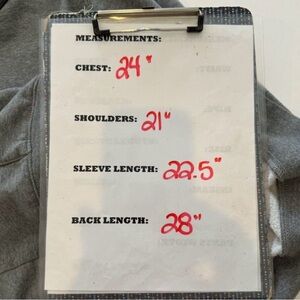 MEASUREMENTS:
CHEST: 24"
SHOULDERS: 21"
SLEEVE LENGTH: 22.5"
BACK LENGTH: 28"